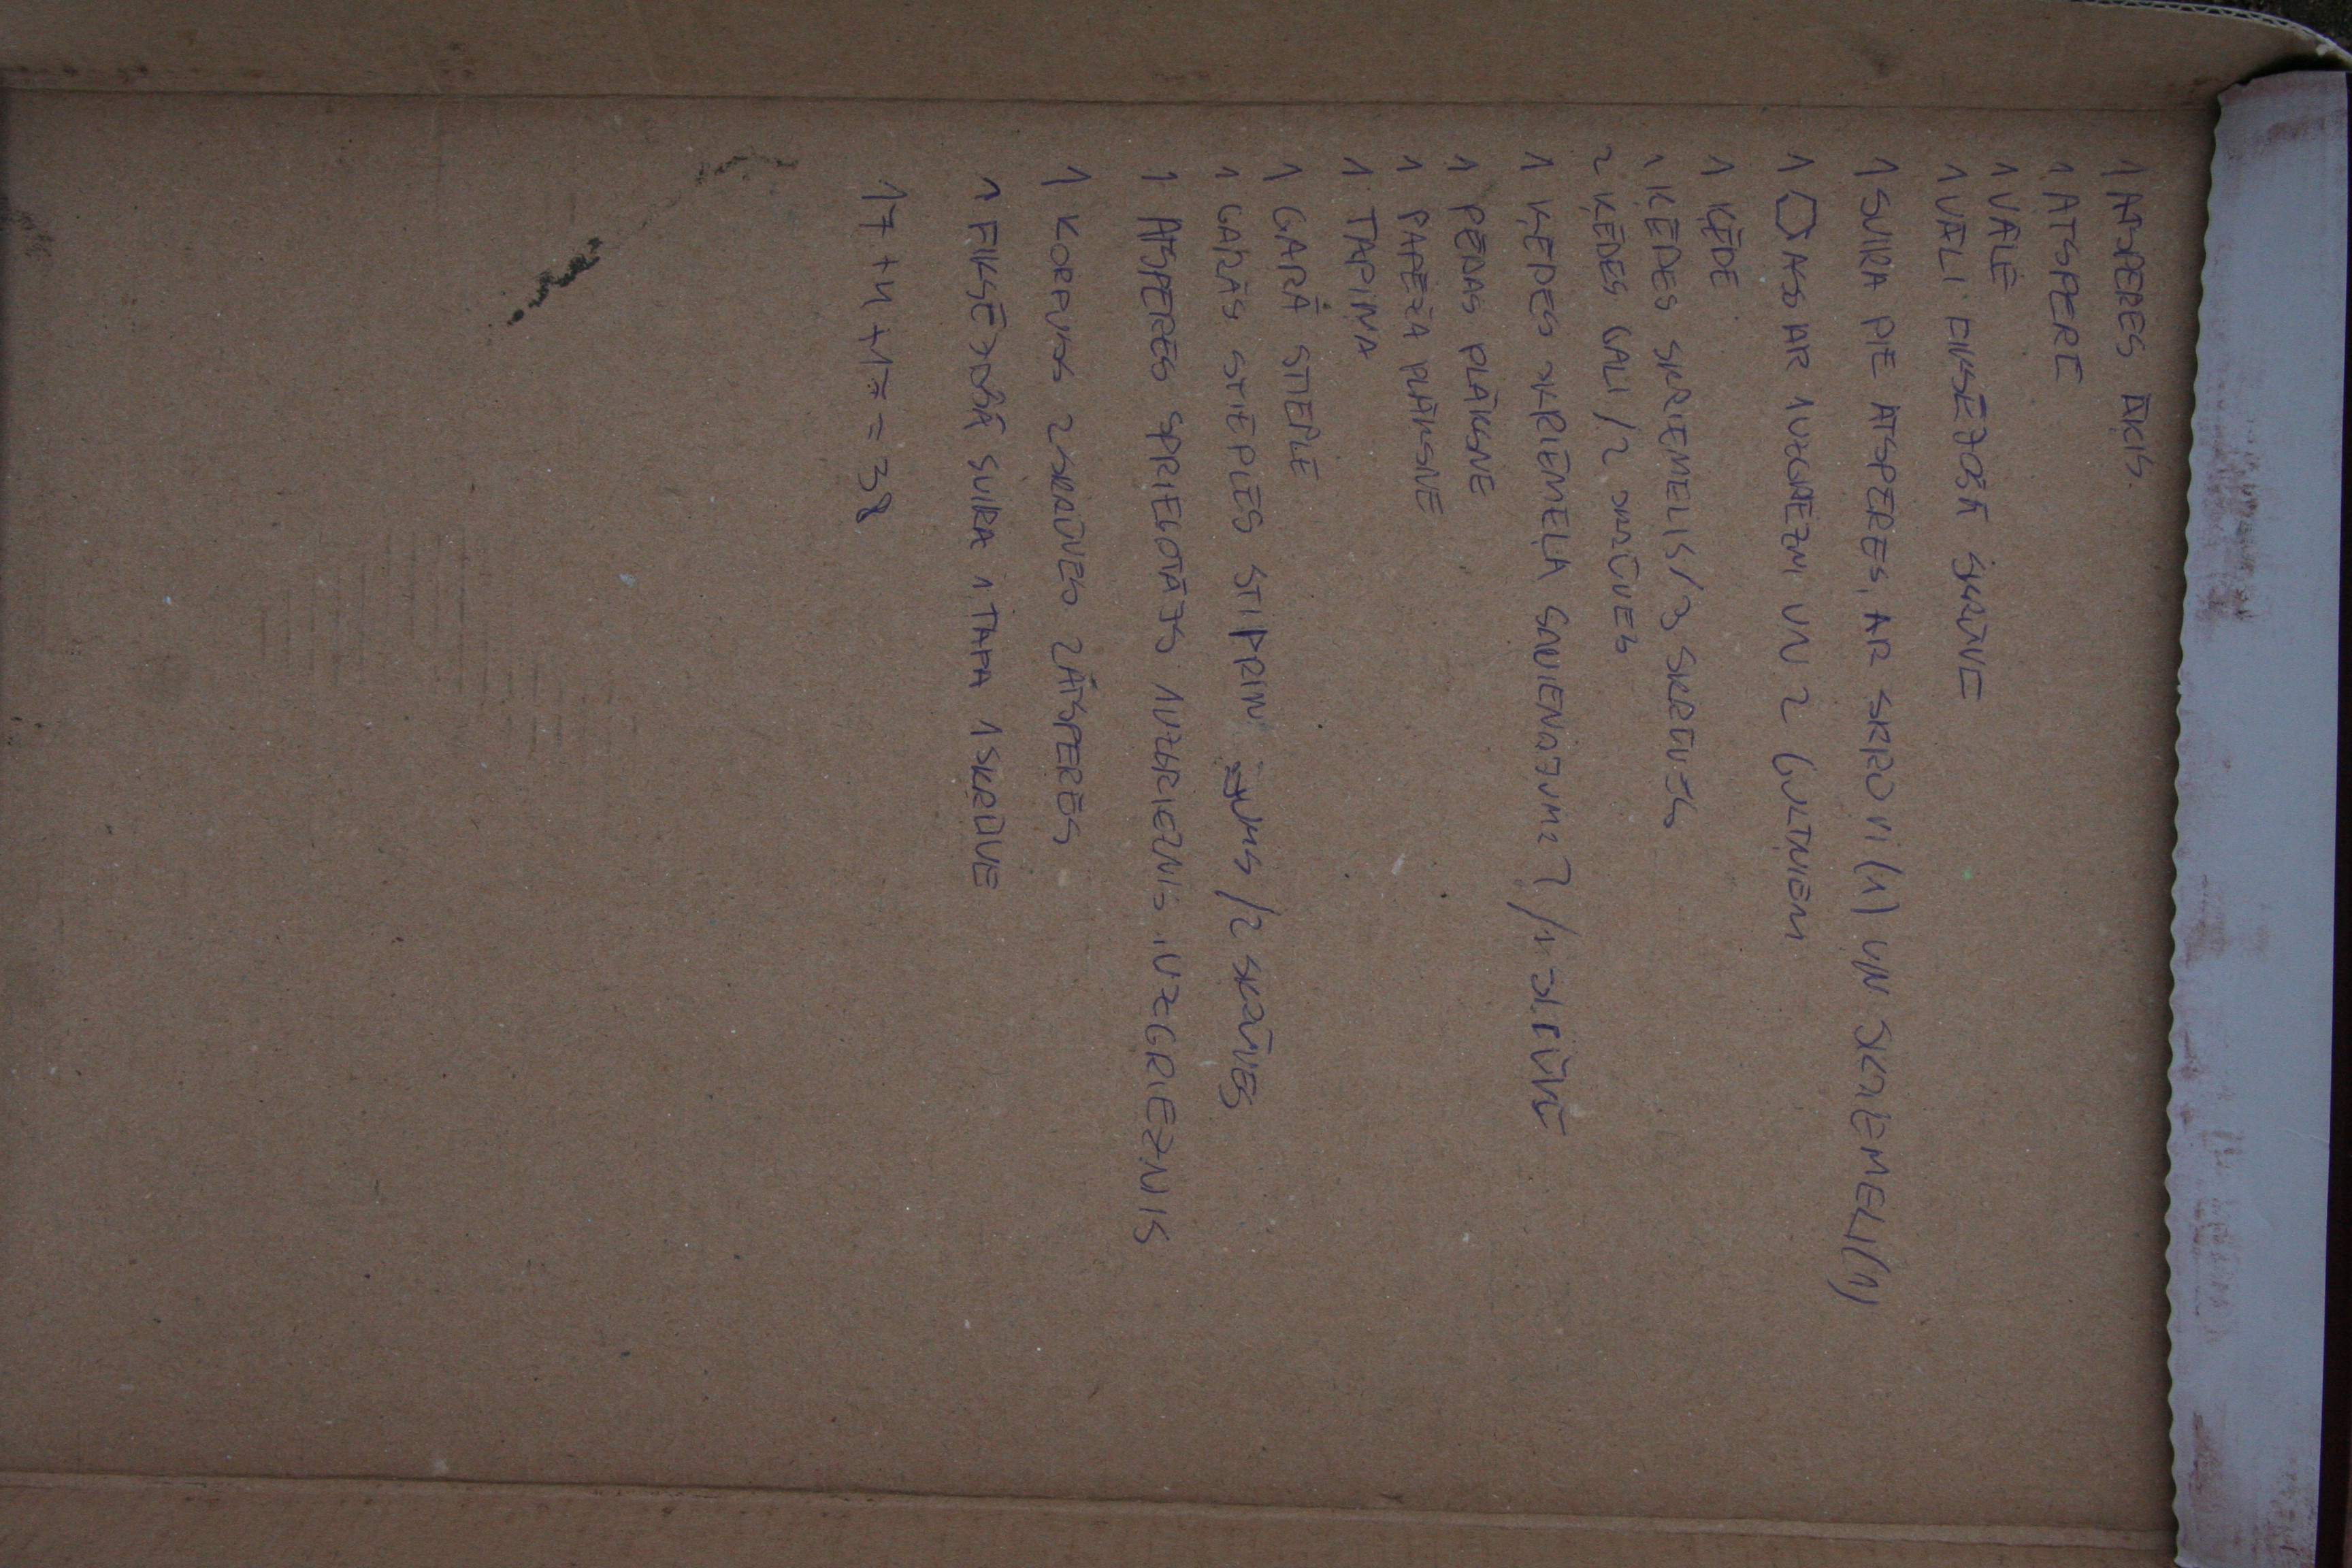 1 ATSPERES ĀĶIS
1 ATSPERE
1 VĀLE
1 VĀLI FIKSĒJOŠĀ SKRŪVE
1 SVIRA PIE ATSPERES, AR SKRŪVI (1) UN SKRIEMELI (1)
1 ASS AR 1 UZGRIEZNI UN 2 GULTŅIEM
1 ĶĒDE
1 ĶĒDES SKRIEMELIS / 3 SKRŪVES
2 ĶĒDES GALI / 2 SKRŪVES
1 ĶĒDES SKRIEMEĻA SAVIENOJUMS / 1 SKRŪVE
1 PĒDAS PLĀKSNE
1 PAPĒŽA PLĀKSNE
1 TAPIŅA
1 GARĀ STIEPLE
1 GARĀS STIEPLES STIPRIN JUMS / 2 SKRŪVES
1 ATSPERES SPRIEGOTĀJS 1 UZGRIEZNIS 1 UZGRIEZNIS
1 KORPUSS 2 SKRŪVES 2 ATSPERES
1 FIKSĒJOŠĀ SVIRA 1 TAPA 1 SKRŪVE
17 + 4 + 17 = 38